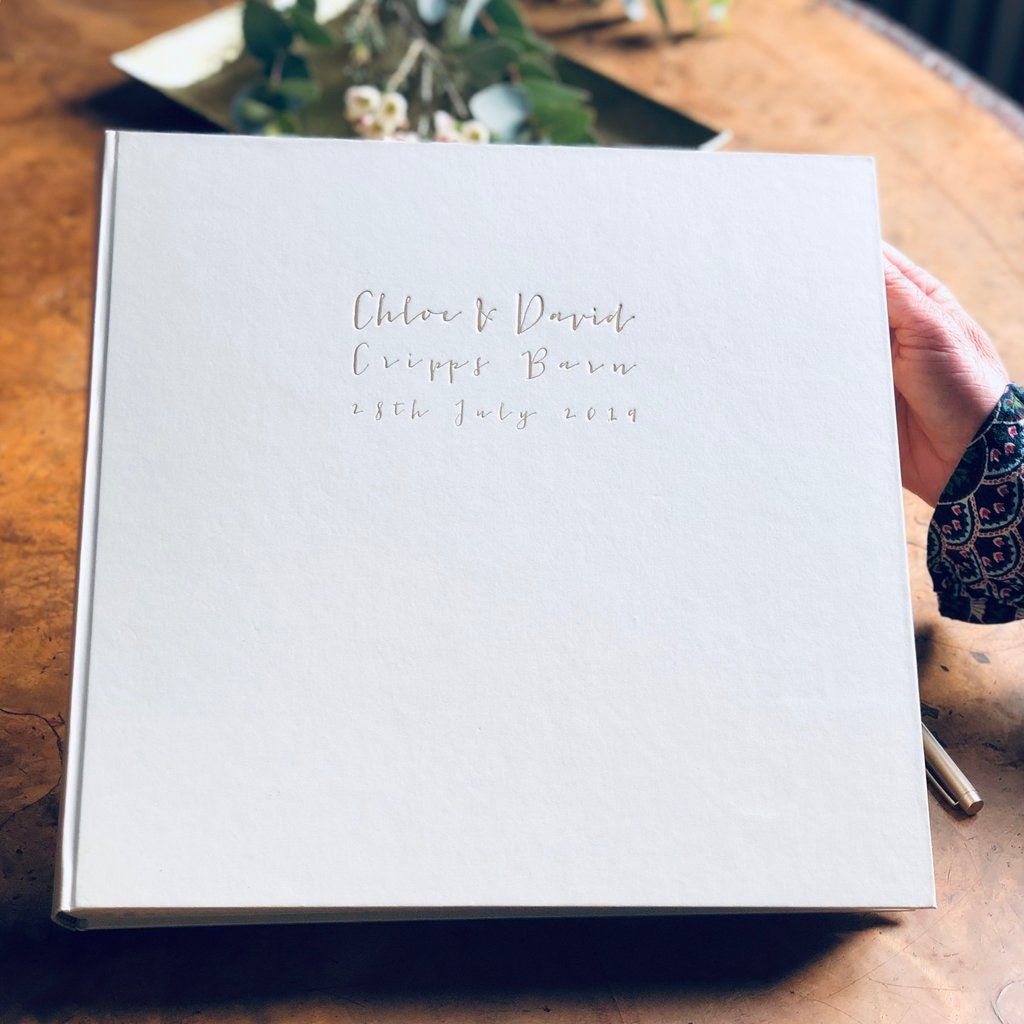 Chloe & David
Cripps Barn
28th July 2019